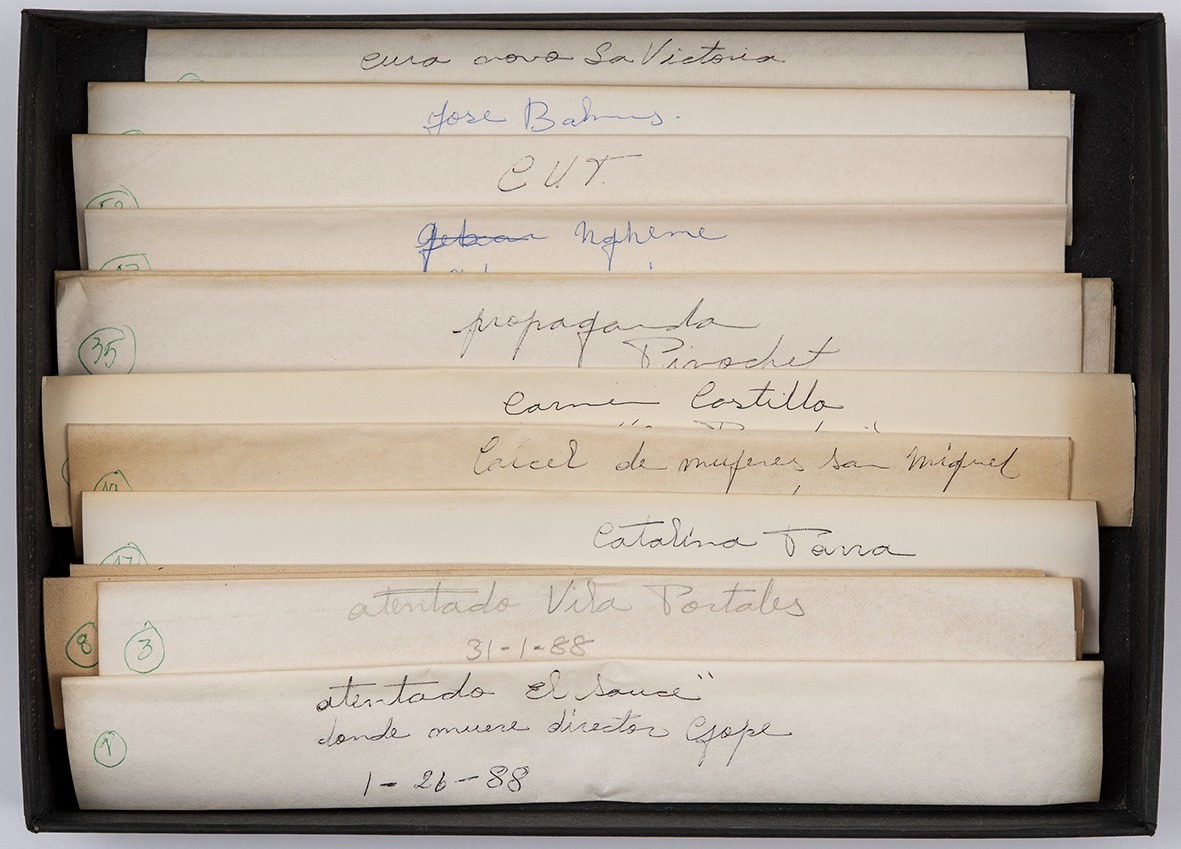 cura novo La Victoria
Jose Bahus.
C.U.T.
Ngheme
propaganda
Pinochet
35
Carmen Castillo
Carcel de mujeres san Miguel
Catalina Parra
17
atentado Vila Portales
31-1-88
8
3
atentado El Sauce"
donde muere director Gope
1-26-88
1